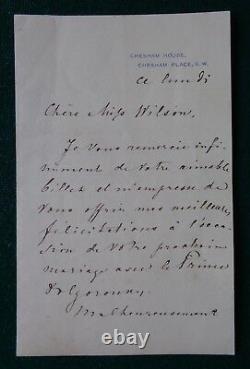 CHESHAM HOUSE,
CHESHAM PLACE, S.W.
Ce lundi
Chère Miss Wilson,
Je vous remercie infi-
niment de votre aimable
billet et m'empresse de
vous offrir mes meilleures
félicitations à l'occa-
sion de votre prochain
mariage avec le Prince
Malheureusement